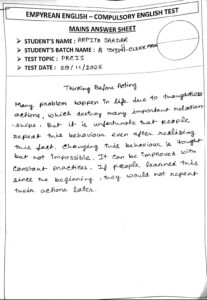 EMPYREAN ENGLISH – COMPULSORY ENGLISH TEST
MAINS ANSWER SHEET
➤ STUDENT'S NAME : ARPITA SARDAR
➤ STUDENT'S BATCH NAME : A -CLERK MAIN
➤ TEST TOPIC : PRCIS
➤ TEST DATE : 29/11/2025
Thinking Before Acting
Many problem happen in life due to thoughtless
actions, which destroy many important relation
-ships. But it is unfortunate that people
repeat this behaviour even after realising
this fact. Changing this behaviour is tought
but not impossible. It can be improved with
constant practices. If people learned this
since the beginning, they would not repent
their actions later.